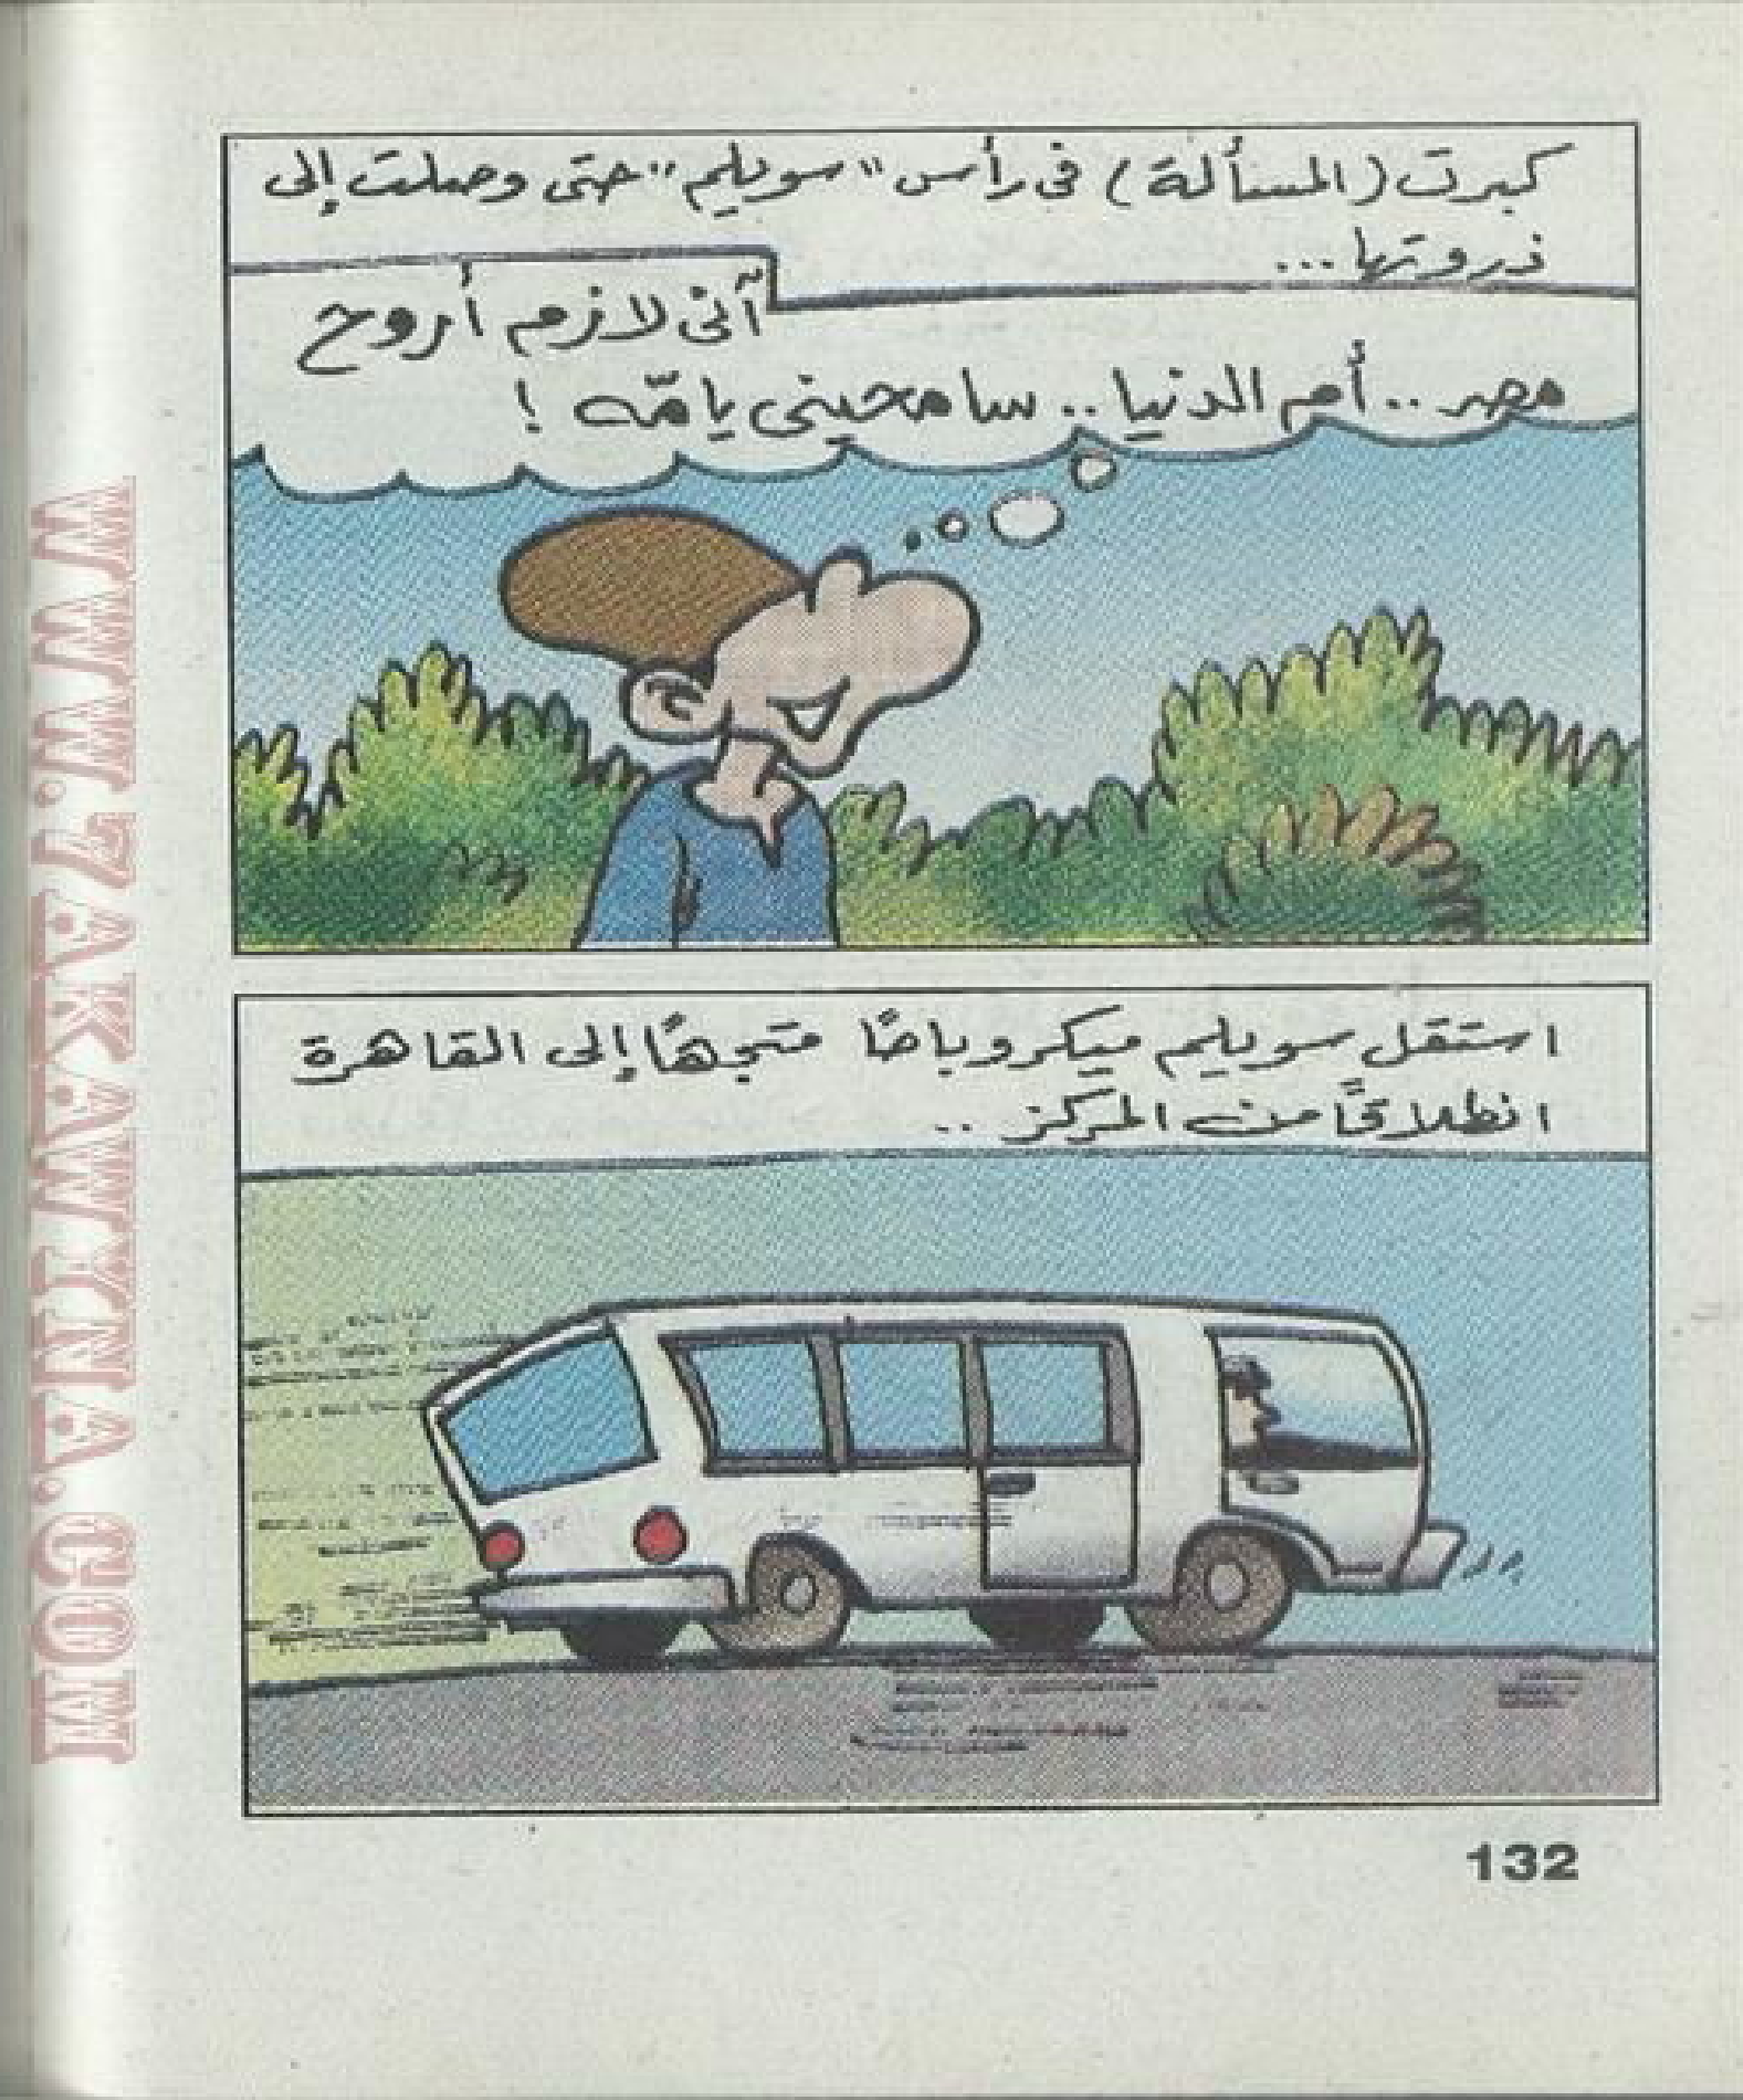 كبرت (المسألة) فى رأس "سويلم" حتى وصلت إلى
ذروتها...
آنى لازم أروح
مصر.. أم الدنيا.. سامحينى يامّه !
استقل سويلم ميكروباصًا متجهًا إلى القاهرة
انطلاقًا من المركز ..
132
WWW.7AKAWTNA.COM